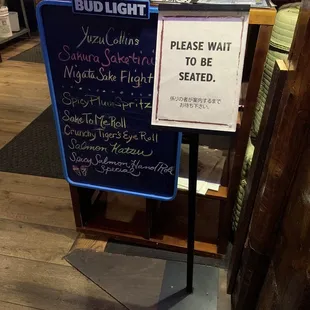 BUD LIGHT
Yuzu Collins
Sakura Saketini
Nigata Sake Flight
Spicy Plum Spritz
Sake To Me Roll
Crunchy Tiger's Eye Roll
Salmon Katsu
Spicy Salmon Hand Roll
Special
PLEASE WAIT
TO BE
SEATED.
係りの者が案内するまで
お待ち下さい。